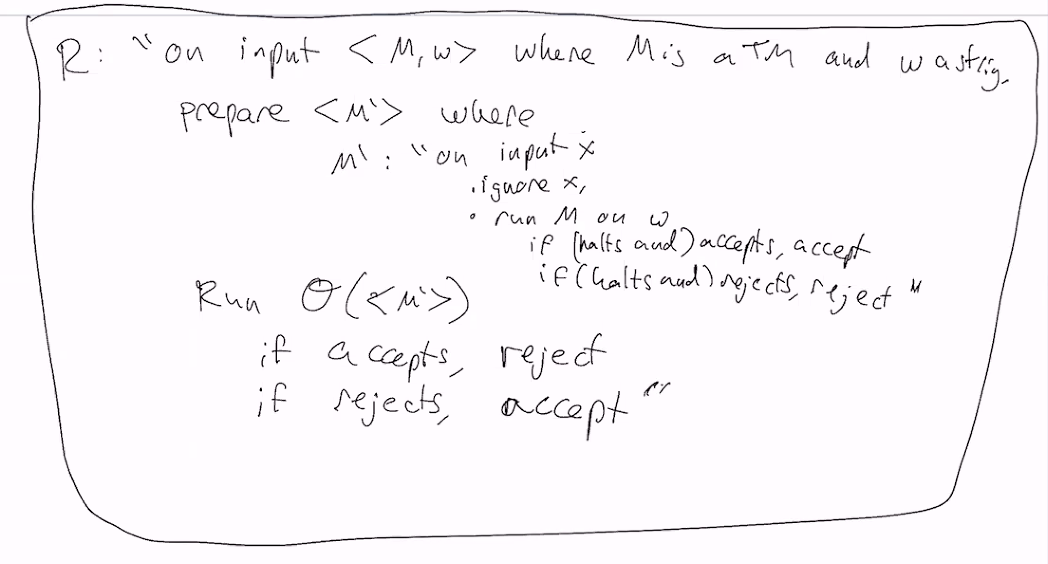 R: "on input <M, w> where M is a TM and w a string.
prepare <M'> where
M' : "on input x
. ignore x,
• run M on w
if (halts and) accepts, accept
if (halts and) rejects, reject "
Run O(<M'>)
if accepts, reject
if rejects, accept "